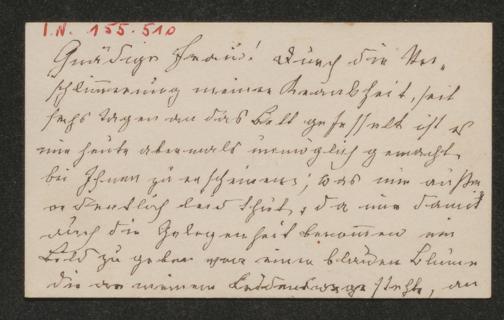 I.N. 155.510
Gnädige Frau! Durch die Ver-
schlimmerung meiner Krankheit, seit
sechs Tagen an das Bett gefesselt ist es
mir heute abermals unmöglich gemacht
bei Ihnen zu erscheinen; was mir außer-
ordentlich leid thut, da mir damit
auch die Gelegenheit benommen ein
Bild zu geben von einer blauen Blume
die an meinem stehe, an